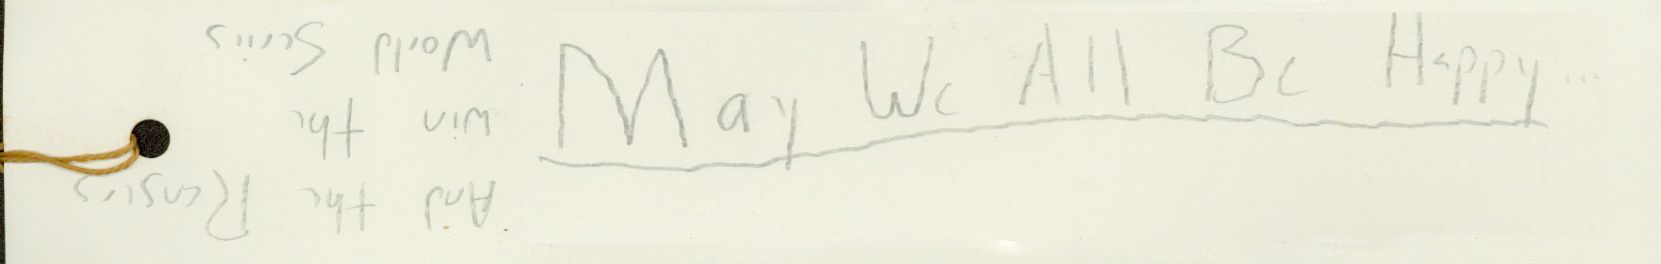 May We All Be Happy...
And the Rangers
win the
World Series